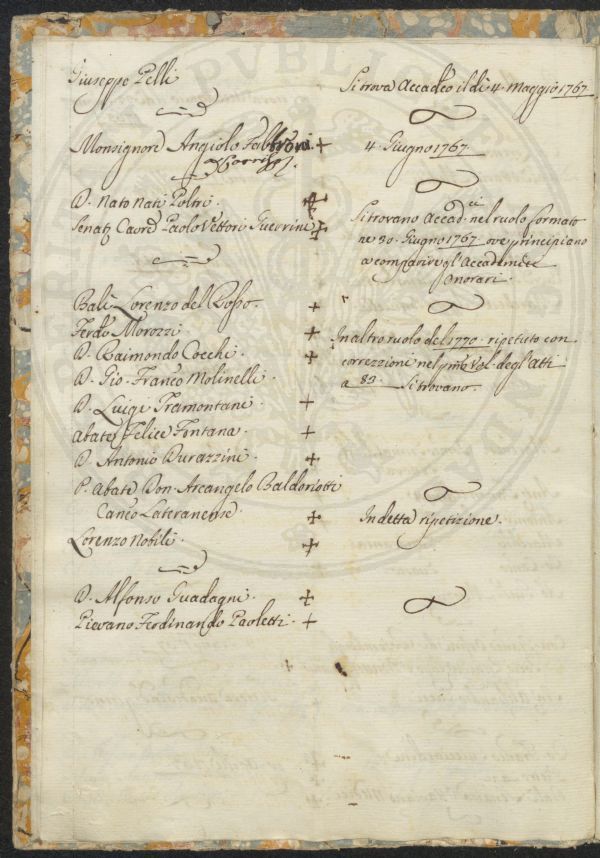 Giuseppe Pelli
Si trova Accadco il dì 4. Maggio 1767.
Monsignore Angiolo Fabbroni. +
4. Giugno 1767.
D. Nato Nati Poltri. +
Senatr Cavre Paolo Vettori Guerrini +
Si trovano Accadci nel ruolo formato
ne 30. Giugno 1767. ove principiano
a comparire gl'Accademici
Onorari.
Balì Lorenzo del Rosso. +
Ferdo Morozzi. +
D. Raimondo Cocchi. +
D. Gio. Franco Molinelli.
D. Luigi Tramontani. +
Abate Felice Fontana. +
D. Antonio Durazzini. +
In altro ruolo del 1770. ripetuto con
correzzioni nel pmo Vol. degl'Atti
a 83. si trovano.
P. Abate Don Arcangelo Baldoriotti
Canco Lateranense. +
Lorenzo Nobili. +
In detta ripetizione.
D. Alfonso Guadagni. +
Pievano Ferdinando Paoletti. +